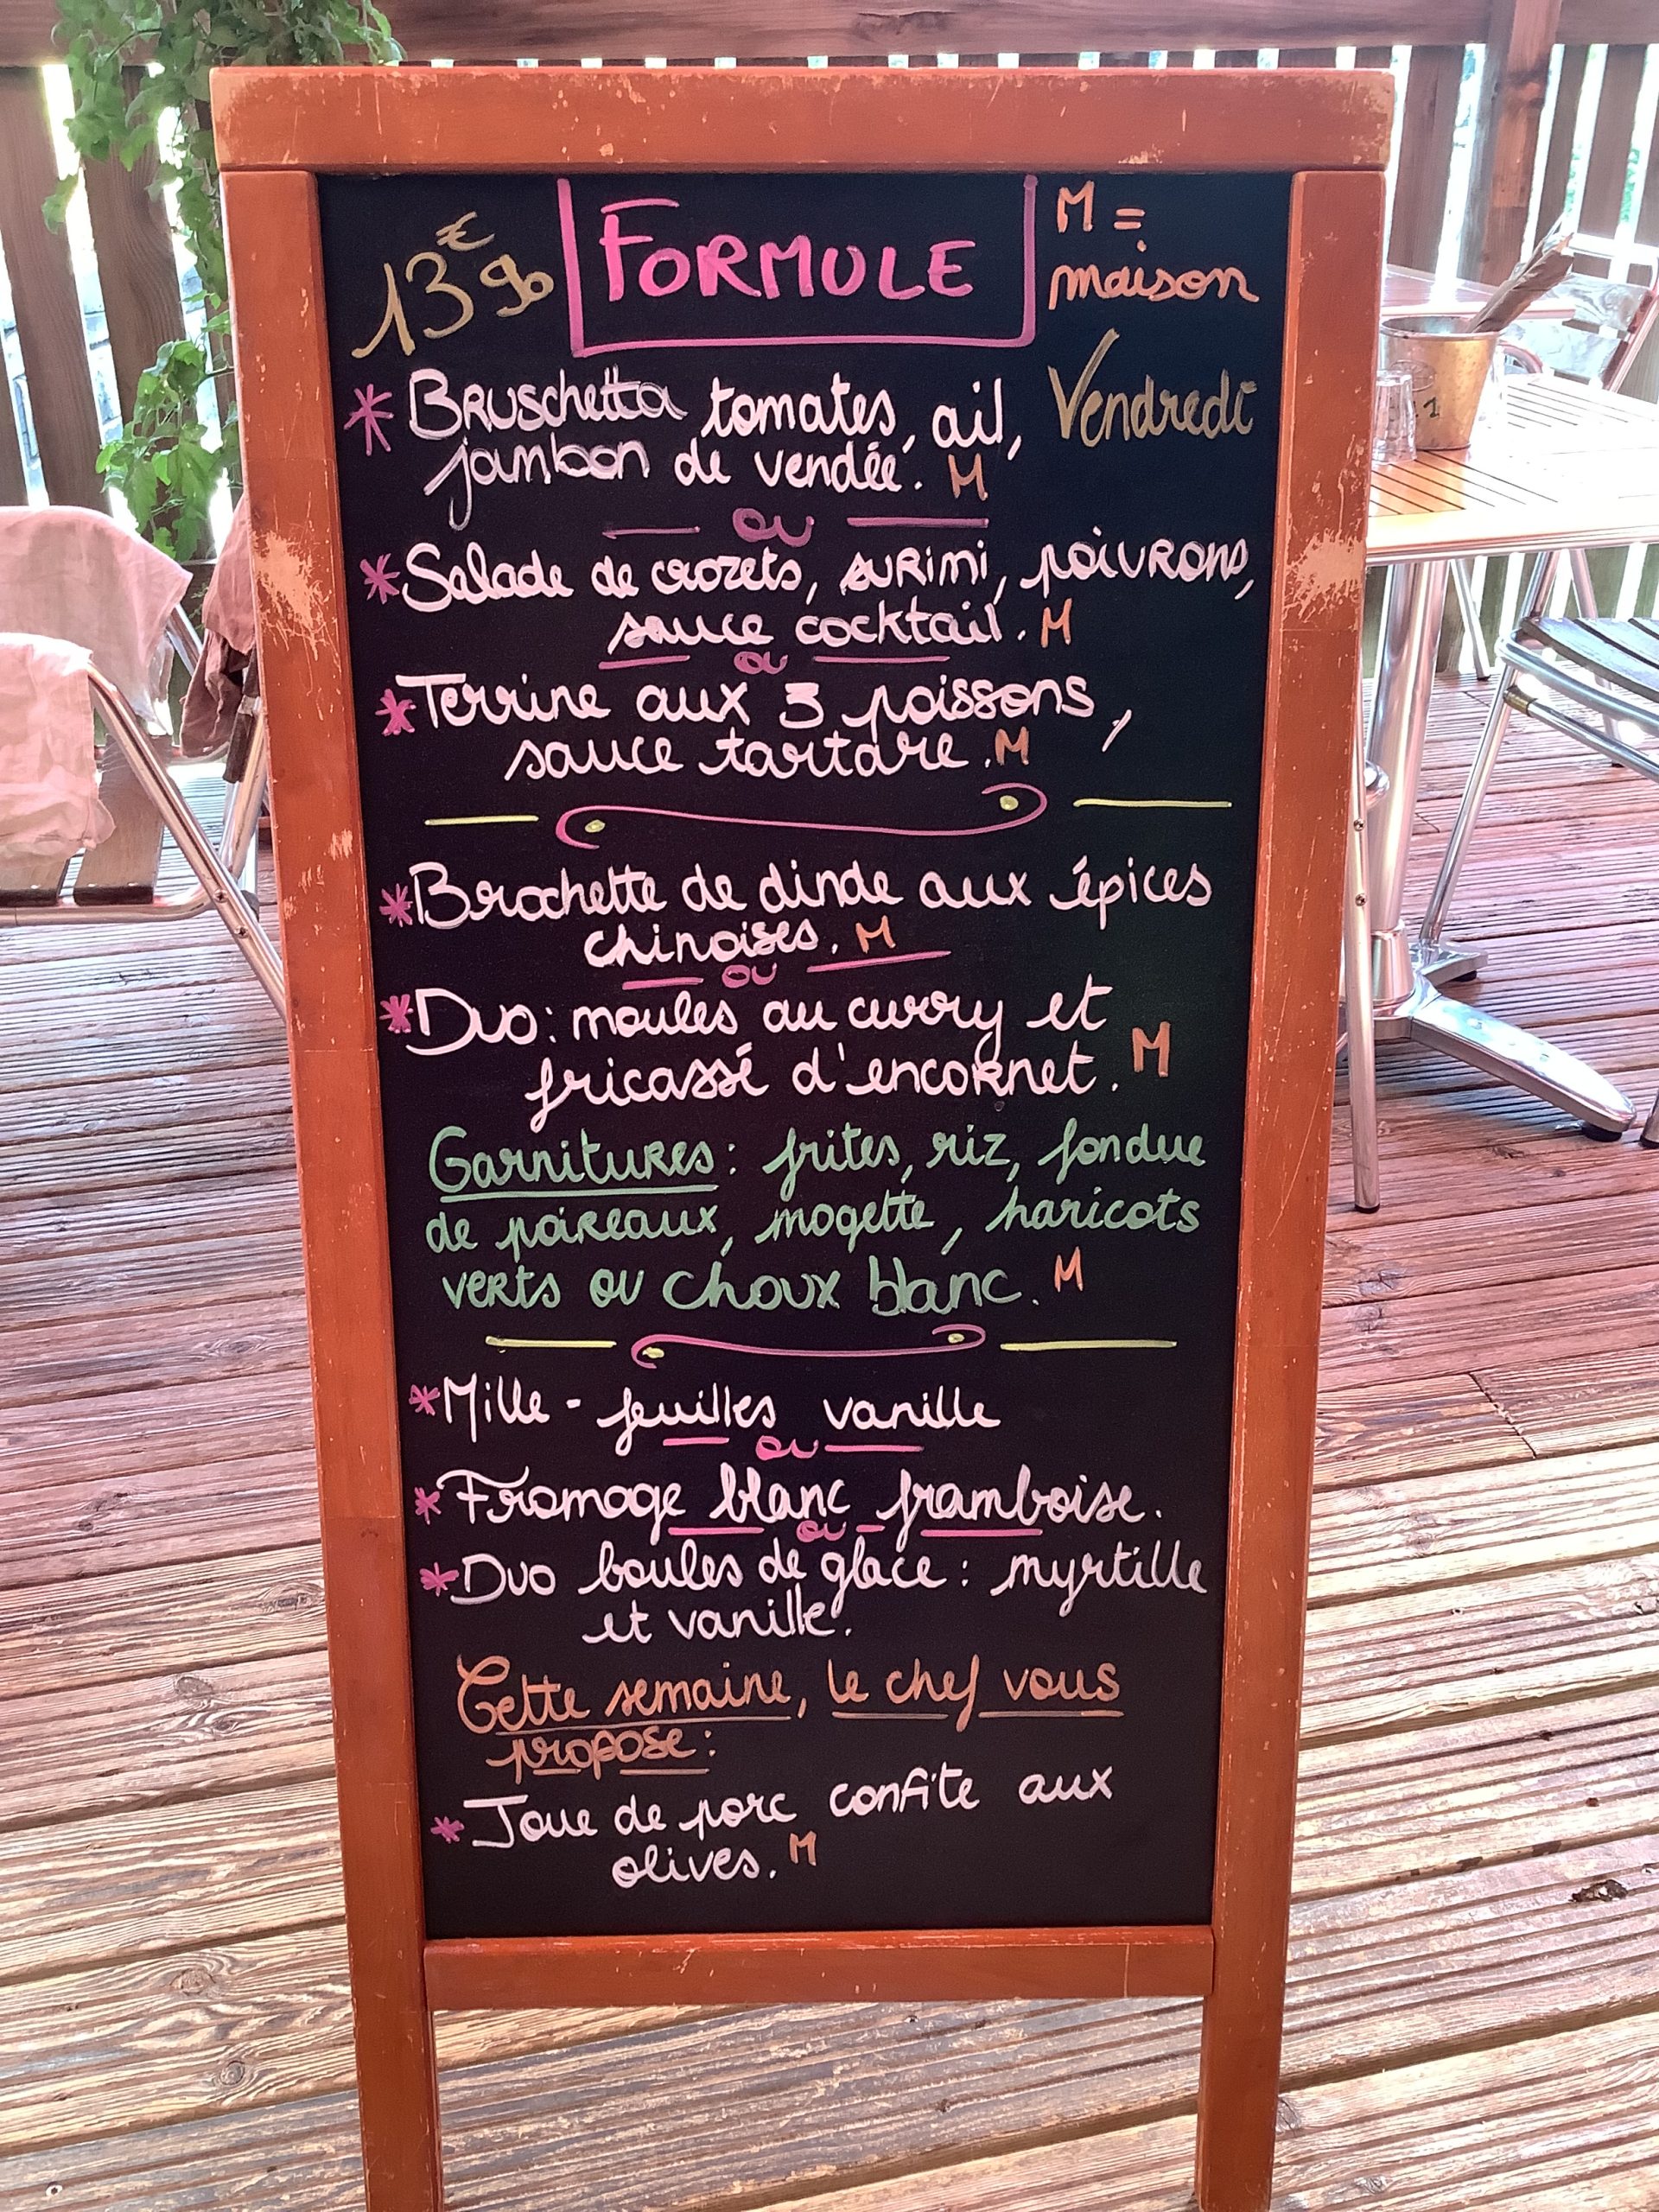 13€90 FORMULE M = maison
Vendredi
* Bruschetta tomates, ail,
jambon de vendée. M
ou
* Salade de crozets, surimi, poivrons,
sauce cocktail. M
ou
* Terrine aux 3 poissons,
sauce tartare. M
* Brochette de dinde aux épices
chinoises. M
ou
* Duo: moules au curry et
fricassé d'encornet. M
Garnitures: frites, riz, fondue
de poireaux, mogette, haricots
verts ou choux blanc. M
* Mille-feuilles vanille
ou
* Fromage blanc framboise.
ou
* Duo boules de glace: myrtille
et vanille.
Cette semaine, le chef vous
propose:
* Joue de porc confite aux
olives. M
1